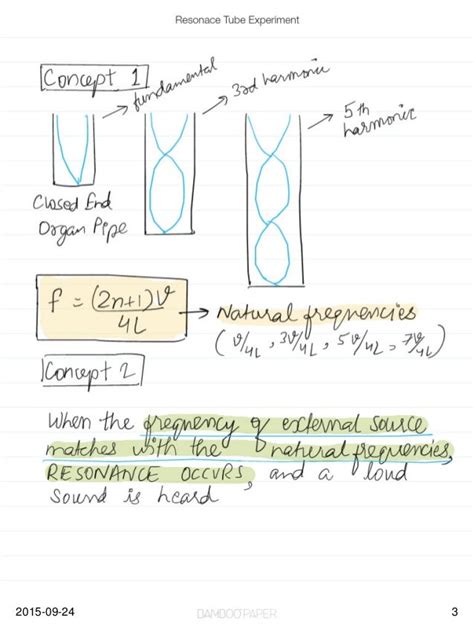 Resonace Tube Experiment
Concept 1
fundamental
3rd harmonic
5th harmonic
Closed End
Organ Pipe
f = (2n+1)v / 4L
Natural frequencies
(v/4L, 3v/4L, 5v/4L, 7v/4L)
Concept 2
When the frequency of external source
matches with the natural frequencies,
RESONANCE OCCURS, and a loud
sound is heard
2015-09-24
BAMBOOPAPER
3